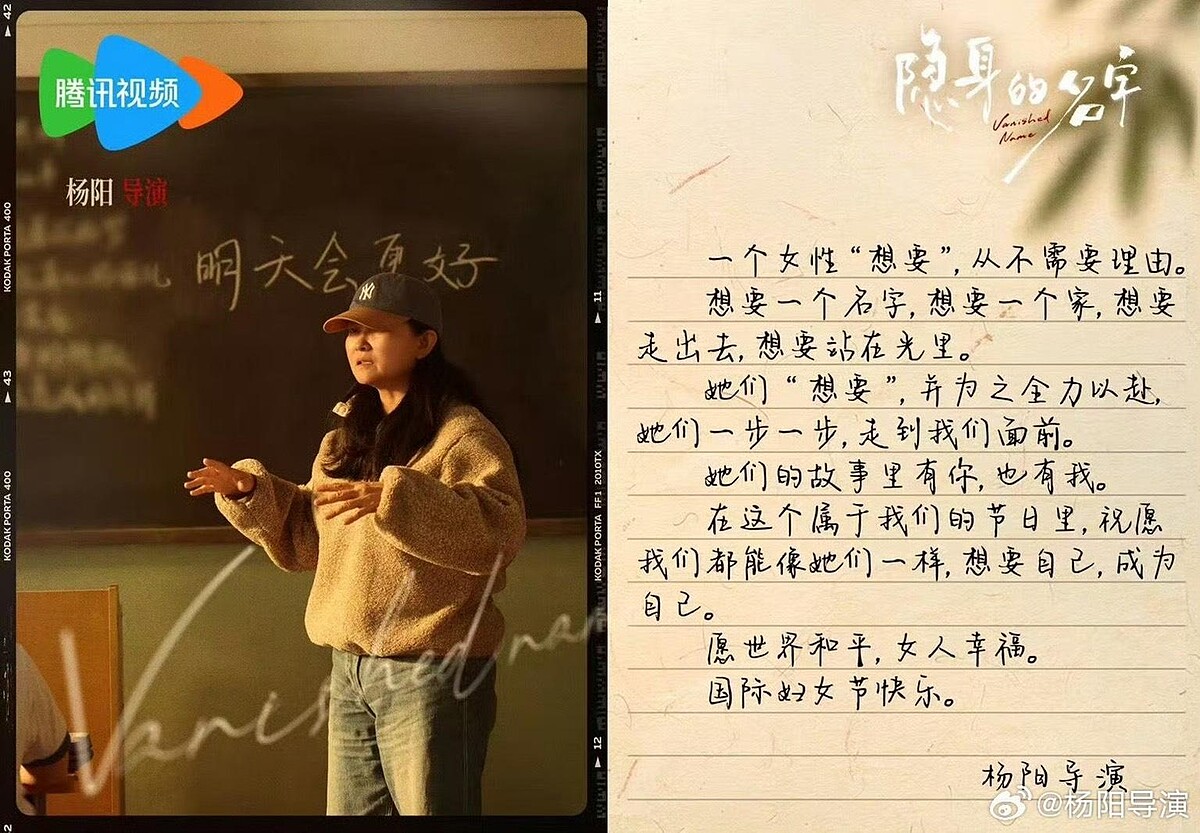 42
腾讯视频
杨阳 导演
KODAK PORTA 400
明天会更好
43
KODAK PORTA 400
2
11
KODAK PORTA FF1 2010TX
12
Vanished name
隐身的名字
Vanished
Name
一个女性“想要”,从不需要理由。
想要一个名字,想要一个家,想要
走出去,想要站在光里。
她们“想要”,并为之全力以赴,
她们一步一步,走到我们面前。
她们的故事里有你,也有我。
在这个属于我们的节日里,祝愿
我们都能像她们一样,想要自己,成为
自己。
愿世界和平,女人幸福。
国际妇女节快乐。
杨阳导演
@杨阳导演